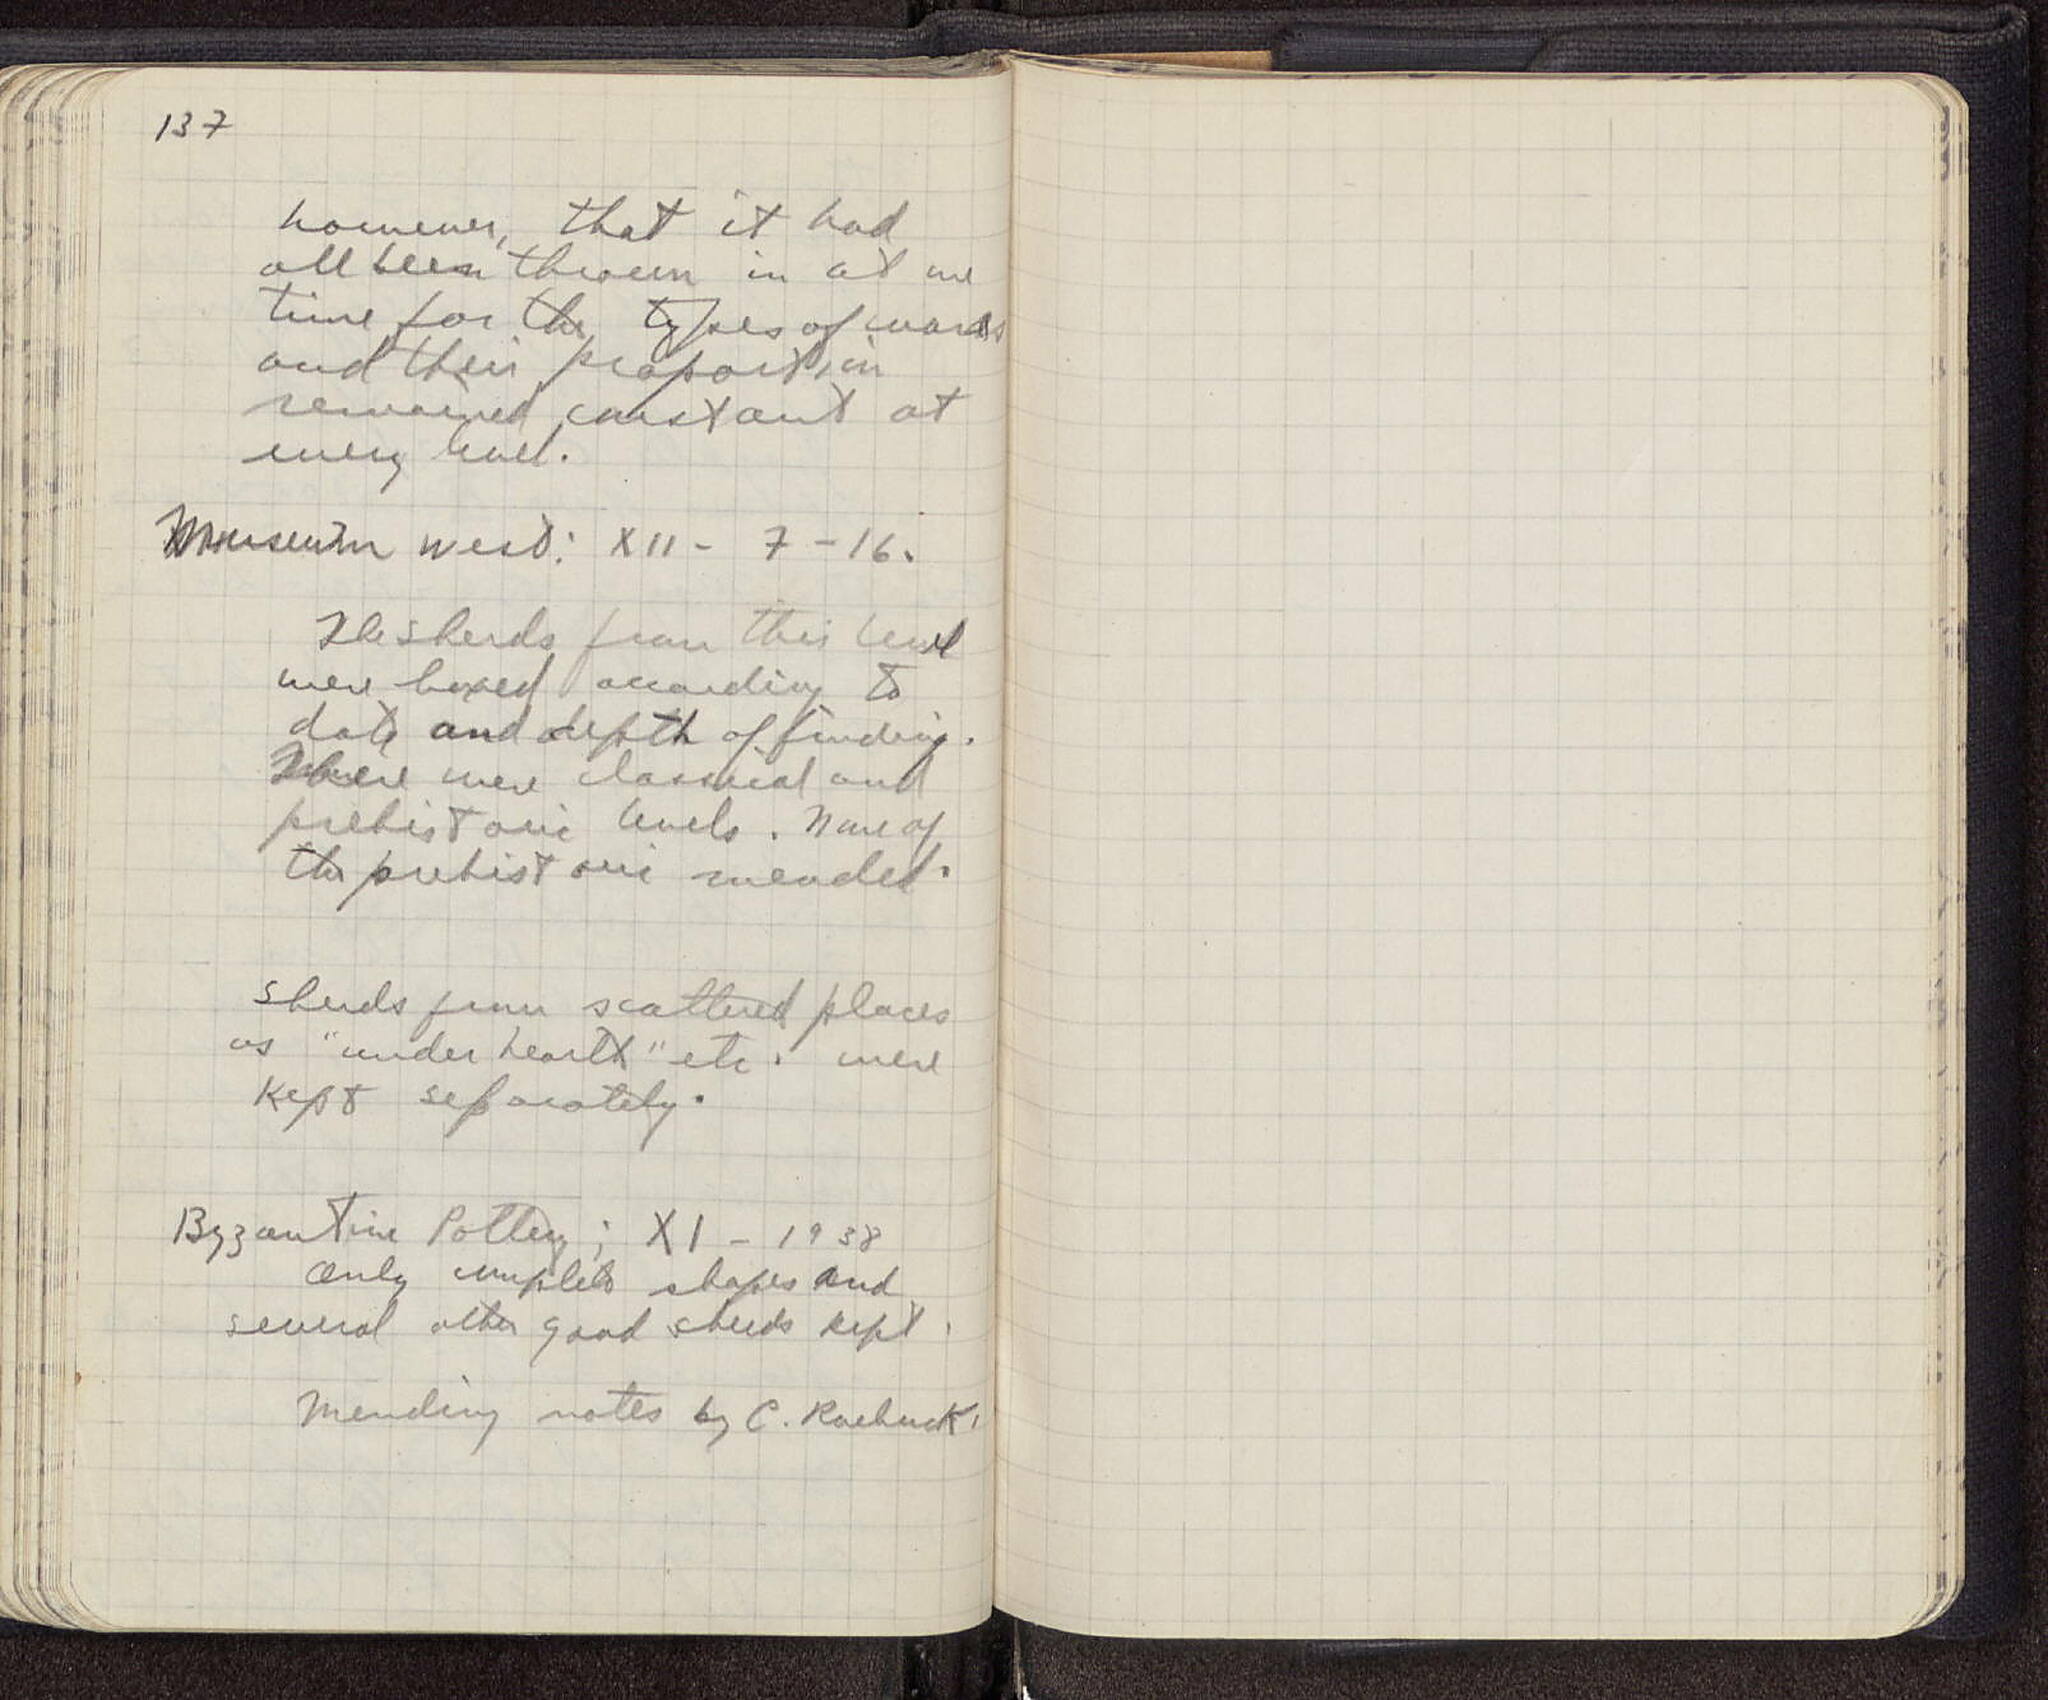 137
however, that it had
all been thrown in at one
time for the types of wares
and their proportion
remained constant at
every level.
Museum West: XII - 7 - 16.
The sherds from this level
were boxed according to
date and depth of finding.
There were classical and
prehistoric levels. None of
the prehistoric mended.
Sherds from scattered places
as "under hearth" etc. were
kept separately.
Byzantine Pottery; XI - 1938
Only complete shapes and
several other good sherds kept.
Mending notes by C. Roebuck.